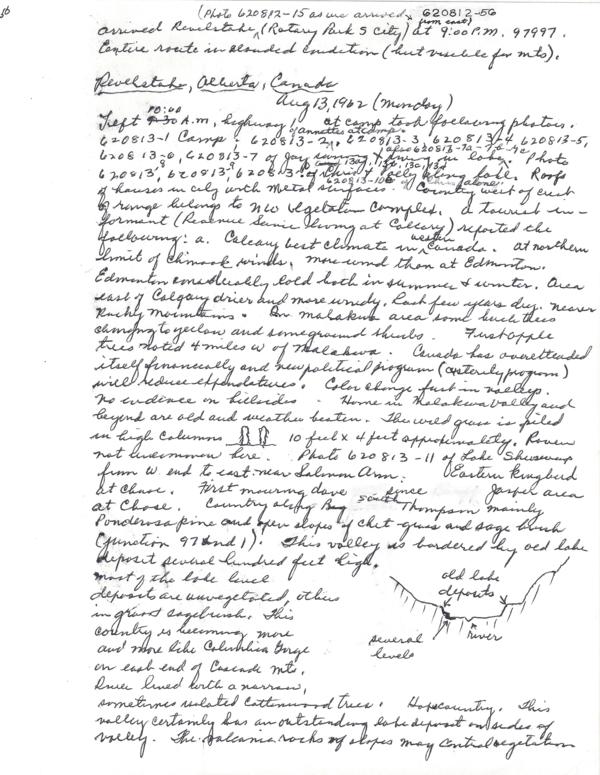 56
(Photo 620812-15 as we arrived, 620812-56
(from east)
arrived Revelstoke (Rotary Park 5 city) at 9:00 P.M. 97997.
Entire route in clouded condition (but visible for mts).
Revelstoke, Alberta, Canada
Aug 13, 1962 (Monday)
10:00
Left 9:30 A.M, highway 1 at camp took following photos.
of annettes at camp.
620813-1 Camp; 620813-2, 620813-3, 620813-4, 620813-5,
also 620813-7a-7b-7c
620813-6, 620813-7 of Jay swimming in lake. Photo
13a, 13b, 13c, 13d
620813, 620813, 620813 of Christ valley along lake. Roofs
620813-10 alone.
of houses in city with metal surfaces. Country west of crest
of range belongs to NW vegetation complex. a tourist in-
formant (living at Calgary) reported the
western
following: a. Calgary best climate in Canada. at northern
limit of Chinook winds, more wind than at Edmonton.
Edmonton considerably cold both in summer & winter. Area
east of Calgary drier and more windy. Last few years dry. nearer
Rocky Mountains. In Malakwa area some birch trees
changing to yellow and some ground shrubs. First apple
trees noted 4 miles W of Malakwa. Canada has overextended
itself financially and new political program (austerity program)
will reduce expenditures. Color change just in valleys.
no evidence on hillsides. Home in Malakwa Valley and
beyond are old and weather beaten. The wild grass is piled
in high columns 10 feet x 4 feet approximately. Raven
not uncommon here. Photo 620813-11 of Lake Shuswap
from W. end to east near Salmon Arm. Eastern Kingbird
at Chase. First mourning dove since Jasper area
at Chase. Country along South Thompson mainly
Ponderosa pine and open slopes of cheat-grass and sage brush
(junction 97 and 1). This valley is bordered by old lake
deposit several hundred feet high.
most of the lake level
deposit are unvegetated, others
in grass & sagebrush. This
country is becoming more
and more like Columbia Gorge
on east end of Cascade Mts.
River lined with a narrow,
sometimes isolated cottonwood trees. Hopcountry. This
valley certainly has an outstanding lake deposit on sides of
valley. The volcanic rocks of slopes may control vegetation
old lake
deposits
river
several
levels